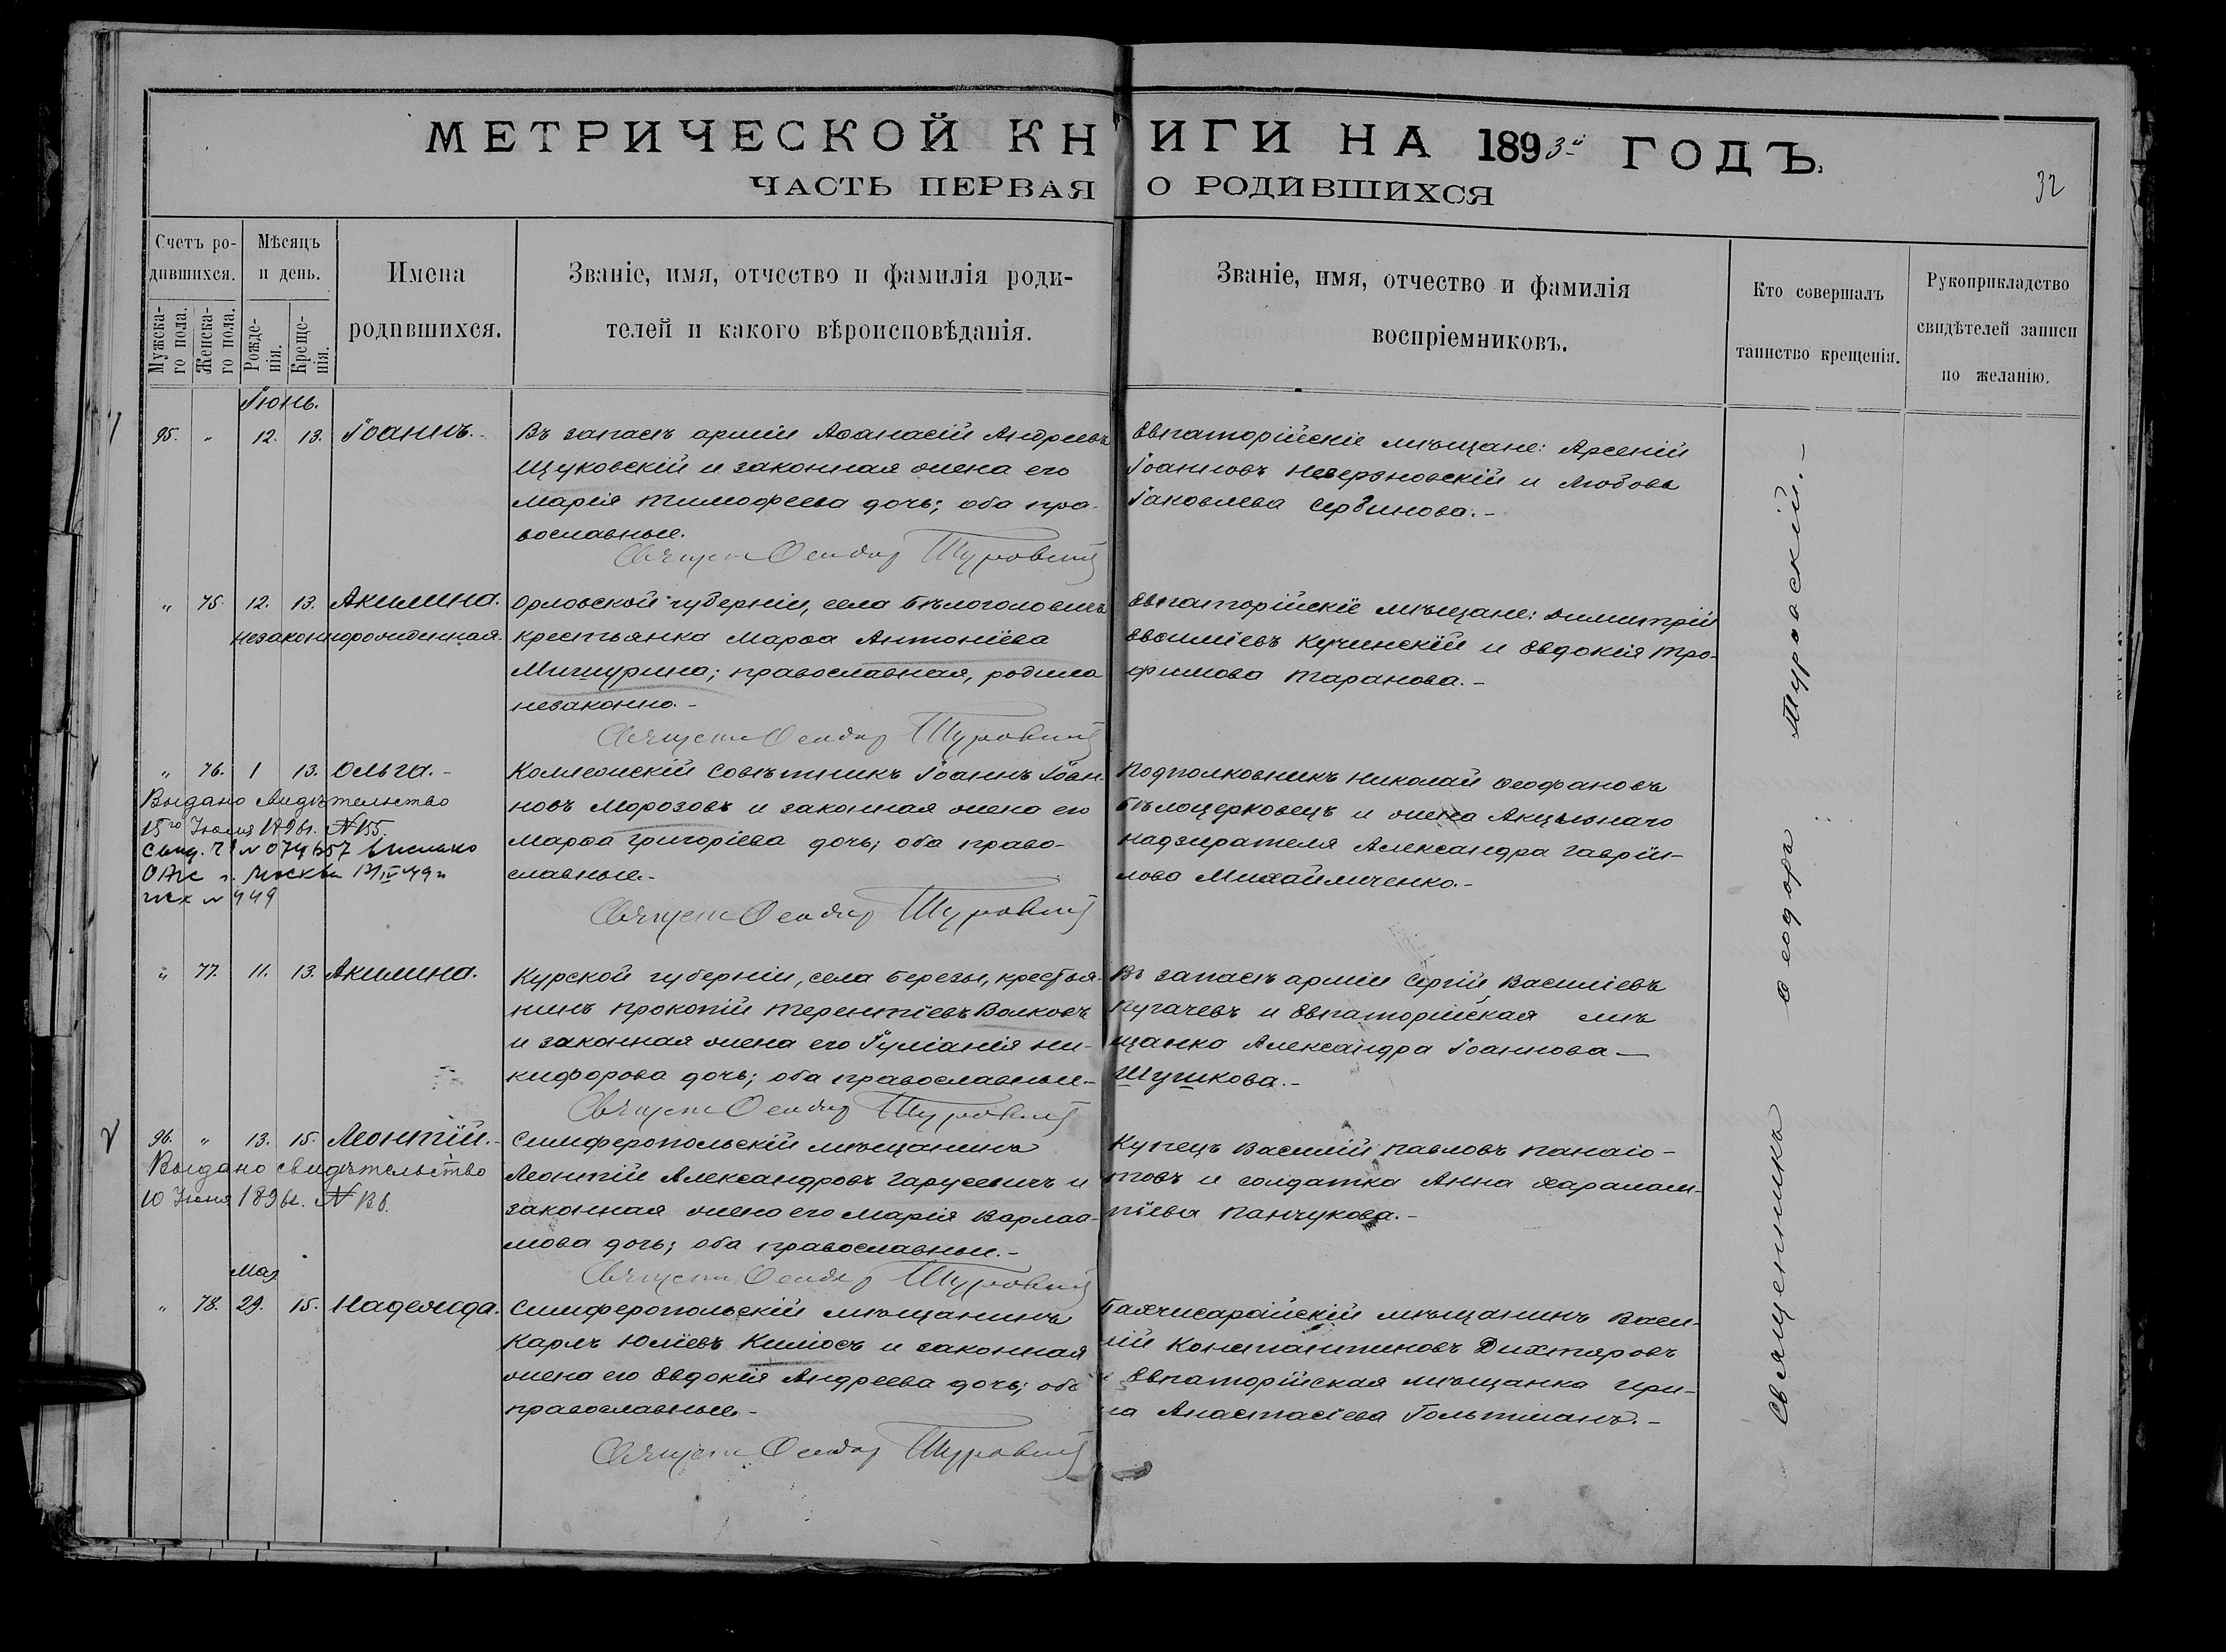 МЕТРИЧЕСКОЙ КНИГИ НА 1893й ГОДЪ.
ЧАСТЬ ПЕРВАЯ О РОДИВШИХСЯ
32
Счетъ ро-
дившихся.
Мужска-
го пола.
Женска-
го пола.
Мѣсяцъ
и день.
Рожде-
нія.
Креще-
нія.
Имена
родившихся.
Званіе, имя, отчество и фамилія роди-
телей и какого вѣроисповѣданія.
Званіе, имя, отчество и фамилія
воспріемниковъ.
Кто совершалъ
таинство крещенія.
Рукоприкладство
свидѣтелей записи
по желанію.
Іюнь.
1
95. " 12. 13. Іоаннъ.-
Въ запасѣ арміи Аѳанасій Андреевъ
Щуковскій и законная жена его
Марія Тимофеева дочь; оба пра-
вославные.
Священ Ѳеодор Туровский
Евпаторійскіе мѣщане: Арсеній
Іоанновъ и Любовь
Іаковлева Сербинова.-
" 75. 12. 13. Акилина.
незаконнорожденная.
Орловской губерніи, села Бѣлоголовичъ
крестьянка Марѳа Антоніева
Мишурина; православная, родила
незаконно.-
Священ Ѳеодор Туровский
Евпаторійскіе мѣщане: Димитрій
Евѳиміевъ Кучинскій и Евдокія Тро-
фимова Таранова.-
" 76. 1 13. Ольга.-
Выдано свидѣтельство
15го Іюля 1896г. №155.
Москва
№ 949
Коллежскій Совѣтникъ Іоаннъ Іоан-
новъ Морозовъ и законная жена его
Марѳа Григоріева дочь; оба право-
славные.-
Священ Ѳеодор Туровский
Подполковникъ Николай Ѳеофановъ
Бѣлоцерковецъ и жена Акцызнаго
надзирателя Александра Гаврии-
лова Михайличенко.-
" 77. 11. 13. Акилина.
Курской губерніи, села Березы, крестья-
нинъ Прокопій Терентіевъ Волковъ
и законная жена его Іуліанія Ни-
кифорова дочь; оба православные.-
Священ Ѳеодор Туровский
Въ запасѣ арміи Сергій Василіевъ
Пугачевъ и Евпаторійская мѣ
щанка Александра Іоаннова-
Шушкова.-
2
96. " 13. 15. Леонтій.-
Выдано свидѣтельство
10 Іюня 1896г. №
Симферопольскій мѣщанинъ
Леонтій Александровъ Гарусевичъ и
законная жена его Марія Варлаа-
мова дочь; оба православные.-
Священ Ѳеодор Туровский
Купецъ Василій Павловъ Панаіо-
товъ и солдатка Анна Харалам-
піева Панчукова.-
Мая
" 78. 29. 15. Надежда.
Симферопольскій мѣщанинъ
Карлъ Юліевъ Киліосъ и законная
жена его Евдокія Андреева дочь; оба
православные.-
Священ Ѳеодор Туровский
Бахчисарайскій мѣщанинъ Васи-
лій Константиновъ Дихтяровъ
и Евпаторійская мѣщанка Ири-
на Анастасіева Гольтманъ.-
Священникъ Ѳеодоръ Туровскій.-